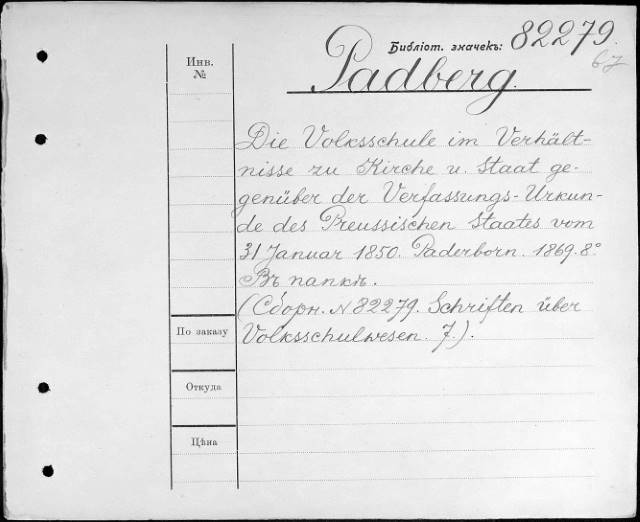 Библіот. значекъ: 82279.
67
Инв.
№
Padberg.
Die Volksschule im Verhält-
nisse zu Kirche u. Staat ge-
genüber der Verfassungs-Urkun-
de des Preussischen Staates vom
31 Januar 1850. Paderborn. 1869. 8°
Въ папкѣ.
(Сборн. N 82279. Schriften über
Volksschulwesen. 7.).
По заказу
Откуда
Цѣна